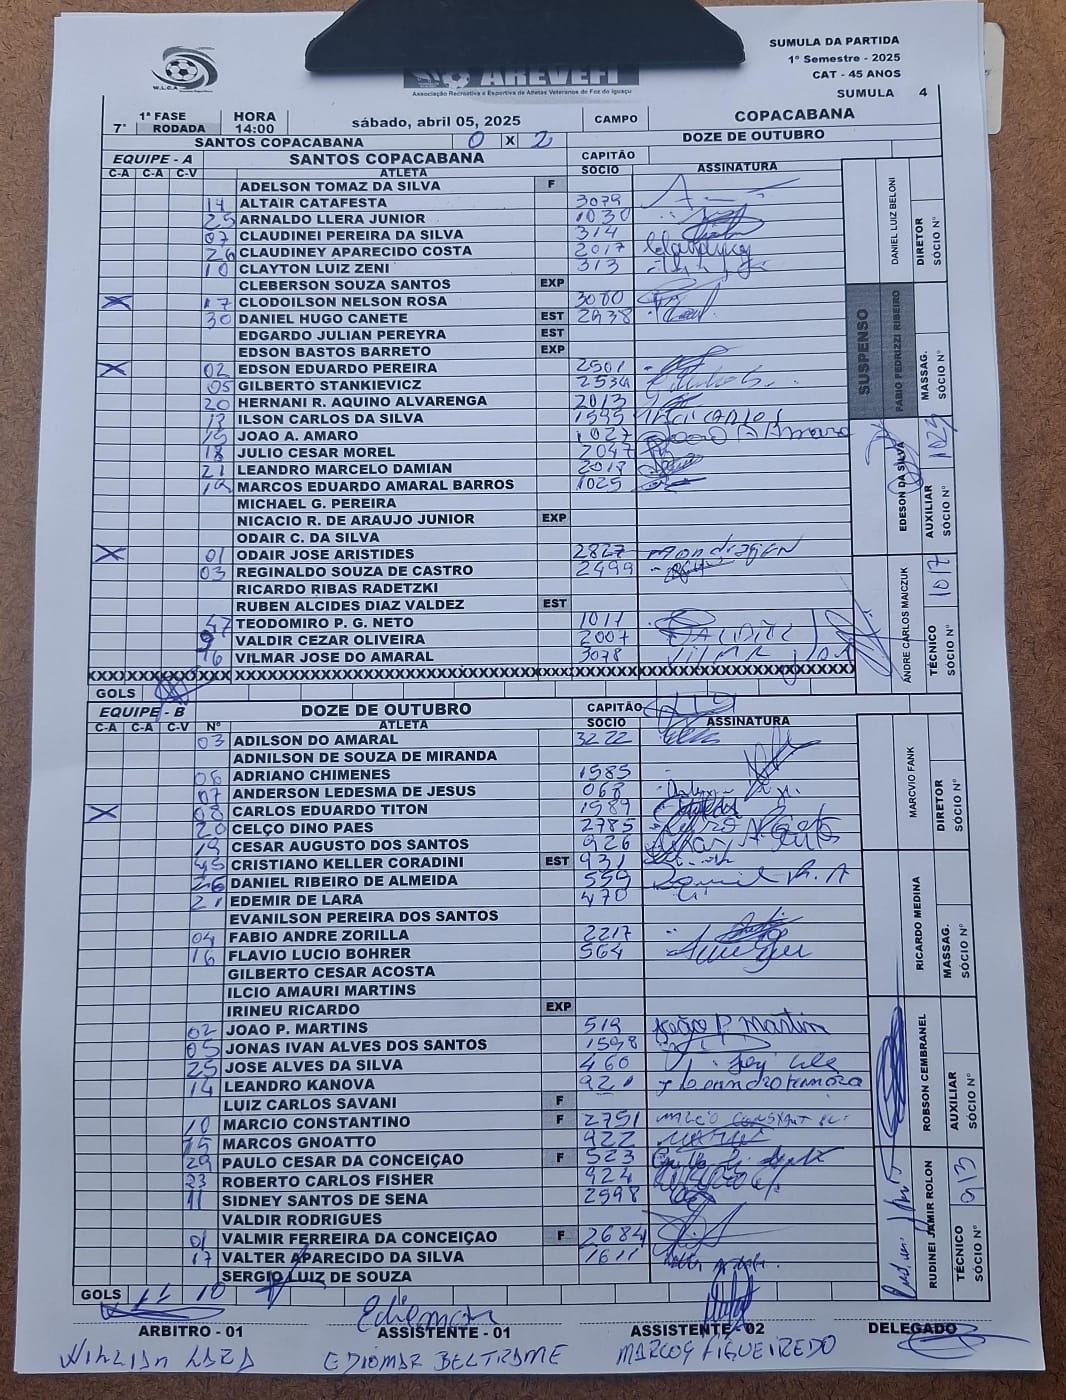 SUMULA DA PARTIDA
1º Semestre - 2025
CAT - 45 ANOS
SUMULA 4
W.L.C.A
AREVEFI
Associação Recreativa e Esportiva de Atletas Veteranos de Foz do Iguaçu
7ª 1ª FASE RODADA HORA 14:00 sábado, abril 05, 2025 CAMPO COPACABANA
SANTOS COPACABANA 0 X 2 DOZE DE OUTUBRO
EQUIPE - A SANTOS COPACABANA CAPITÃO
C-A C-A C-V ATLETA SOCIO ASSINATURA
ADELSON TOMAZ DA SILVA F
14 ALTAIR CATAFESTA 3079
25 ARNALDO LLERA JUNIOR 1030
07 CLAUDINEI PEREIRA DA SILVA 314
26 CLAUDINEY APARECIDO COSTA 2017
10 CLAYTON LUIZ ZENI 313
CLEBERSON SOUZA SANTOS EXP
X 17 CLODOILSON NELSON ROSA 3080
30 DANIEL HUGO CANETE EST 2938
EDGARDO JULIAN PEREYRA EST
EDSON BASTOS BARRETO EXP
X 02 EDSON EDUARDO PEREIRA 2501
05 GILBERTO STANKIEVICZ 2534
20 HERNANI R. AQUINO ALVARENGA 2013
13 ILSON CARLOS DA SILVA 1595
15 JOAO A. AMARO 1027 Joao A Amaro
18 JULIO CESAR MOREL 2047
21 LEANDRO MARCELO DAMIAN 2018
19 MARCOS EDUARDO AMARAL BARROS 1025
MICHAEL G. PEREIRA
NICACIO R. DE ARAUJO JUNIOR EXP
ODAIR C. DA SILVA
X 01 ODAIR JOSE ARISTIDES 2827
03 REGINALDO SOUZA DE CASTRO 2499
RICARDO RIBAS RADETZKI
RUBEN ALCIDES DIAZ VALDEZ EST
TEODOMIRO P. G. NETO 1011
9 VALDIR CEZAR OLIVEIRA 2007
16 VILMAR JOSE DO AMARAL 3078
DANIEL LUIZ BELONI DIRETOR SOCIO Nº
SUSPENSO FABIO PEDRIZZI RIBEIRO MASSAG. SOCIO Nº
EDESON DA SILVA AUXILIAR SOCIO Nº 1029
ANDRE CARLOS MAICZUK TÉCNICO SOCIO Nº 1017
GOLS
EQUIPE - B DOZE DE OUTUBRO CAPITÃO
C-A C-A C-V Nº ATLETA SOCIO ASSINATURA
03 ADILSON DO AMARAL 3222
ADNILSON DE SOUZA DE MIRANDA
06 ADRIANO CHIMENES 1585
07 ANDERSON LEDESMA DE JESUS 068
X 08 CARLOS EDUARDO TITON 1589
20 CELÇO DINO PAES 2785
19 CESAR AUGUSTO DOS SANTOS 926
45 CRISTIANO KELLER CORADINI EST 931
26 DANIEL RIBEIRO DE ALMEIDA 559
21 EDEMIR DE LARA 470
EVANILSON PEREIRA DOS SANTOS
04 FABIO ANDRE ZORILLA 2217
16 FLAVIO LUCIO BOHRER 564
GILBERTO CESAR ACOSTA
ILCIO AMAURI MARTINS
IRINEU RICARDO EXP
02 JOAO P. MARTINS 519 João P. Martin
05 JONAS IVAN ALVES DOS SANTOS 1598
25 JOSE ALVES DA SILVA 460
14 LEANDRO KANOVA 921
LUIZ CARLOS SAVANI F
10 MARCIO CONSTANTINO F 2751
15 MARCOS GNOATTO 922
29 PAULO CESAR DA CONCEIÇAO F 523
23 ROBERTO CARLOS FISHER 924
11 SIDNEY SANTOS DE SENA 2598
VALDIR RODRIGUES
01 VALMIR FERREIRA DA CONCEIÇAO F 2684
17 VALTER APARECIDO DA SILVA 1611
SERGIO LUIZ DE SOUZA
MARCVIO FANK DIRETOR SOCIO Nº
RICARDO MEDINA MASSAG. SOCIO Nº
ROBSON CEMBRANEL AUXILIAR SOCIO Nº
RUDINEI JAMIR ROLON TÉCNICO SOCIO Nº 913
GOLS 11 10
ARBITRO - 01 ASSISTENTE - 01 ASSISTENTE - 02 DELEGADO
WILLIAN LARA EDIOMAR BELTRAME MARCOS FIGUEIREDO